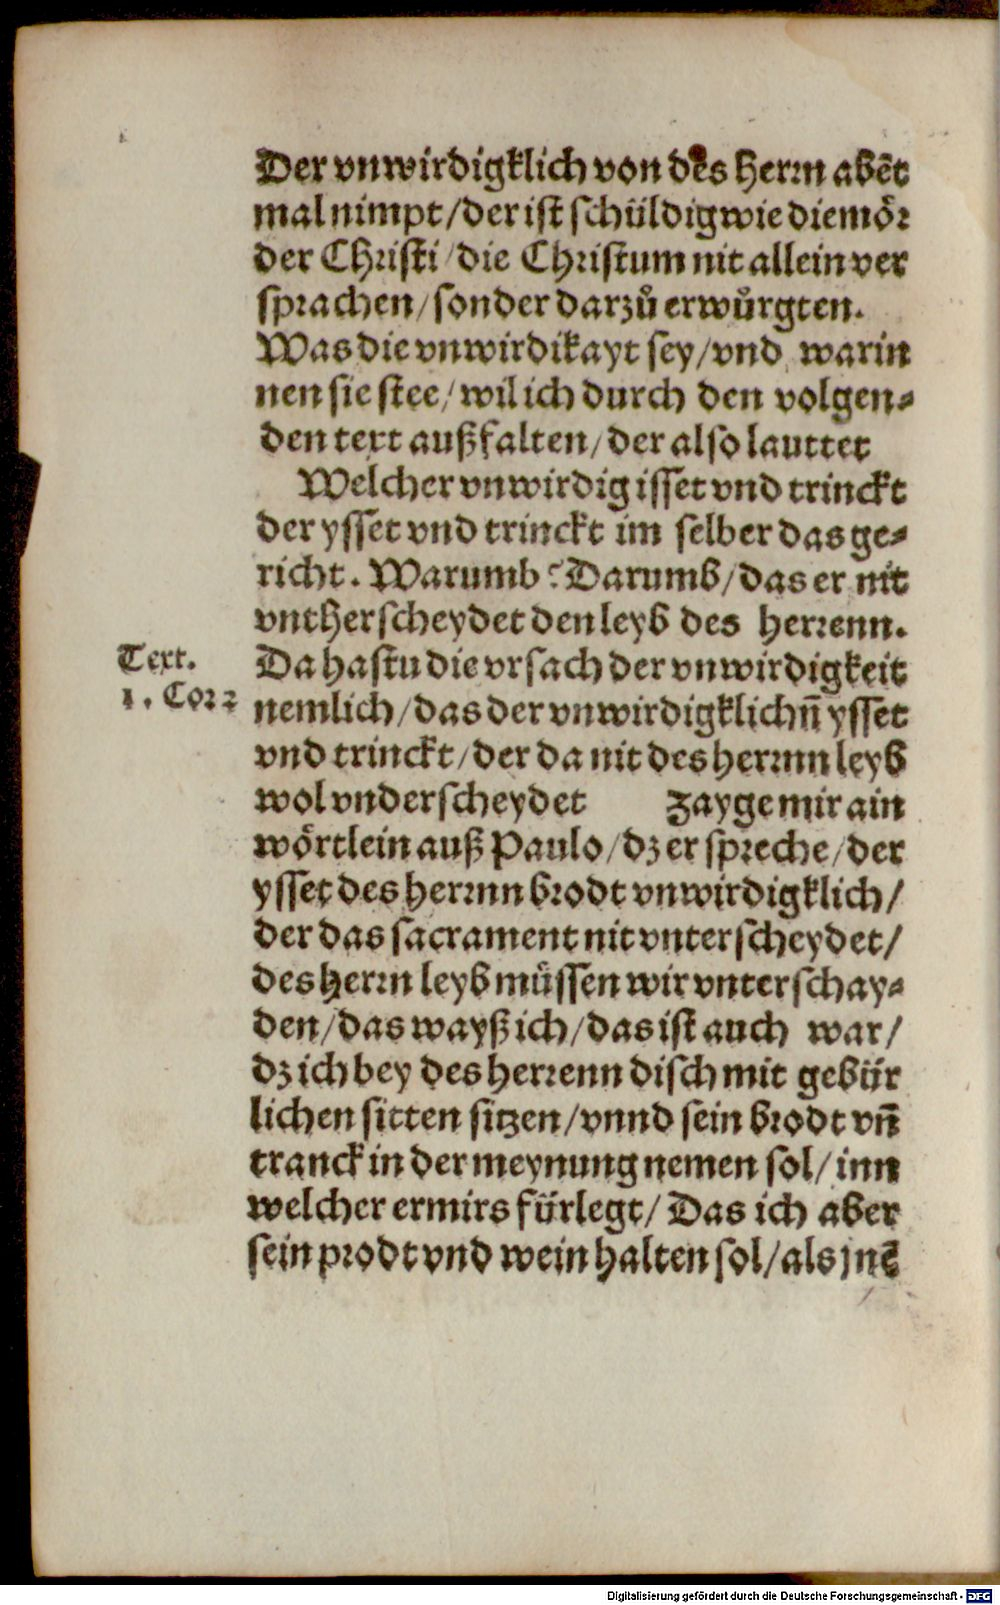 Der vnwirdigklich von des Herrn abēt
mal nimpt/der ist schüldig wie die mör
der Christi/die Christum nit allein ver
sprachen/sonder darzů erwůrgten.
Was die vnwirdikayt sey/vnd warin
nen sie stee/wil ich durch den volgen⸗
den text außfalten/der also lauttet
Welcher vnwirdig isset vnd trinckt
der ysset vnd trinckt im selber das ge⸗
richt. Warumb? Darumb/das er nit
vntherscheydet den leyb des herrenn.
Text.
Da hastu die vrsach der vnwirdigkeit
1. Cor 2
nemlich/das der vnwirdigklichn̄ ysset
vnd trinckt/der da nit des herrnn leyb
wol vnderscheydet zayge mir ain
wörtlein auß Paulo/dz er spreche/der
ysset des herrnn brodt vnwirdigklich/
der das sacrament nit vnterscheydet/
des Herrn leyb müssen wir vnterschay⸗
den/das wayß ich/das ist auch war/
dz ich bey des herrenn disch mit gebür
lichen sitten sitzen/vnnd sein brodt vn̄
tranck in der meynung nemen sol/inn
welcher er mirs fürlegt/Das ich aber
sein prodt vnd wein halten sol/als jnē
Digitalisierung gefördert durch die Deutsche Forschungsgemeinschaft - DFG